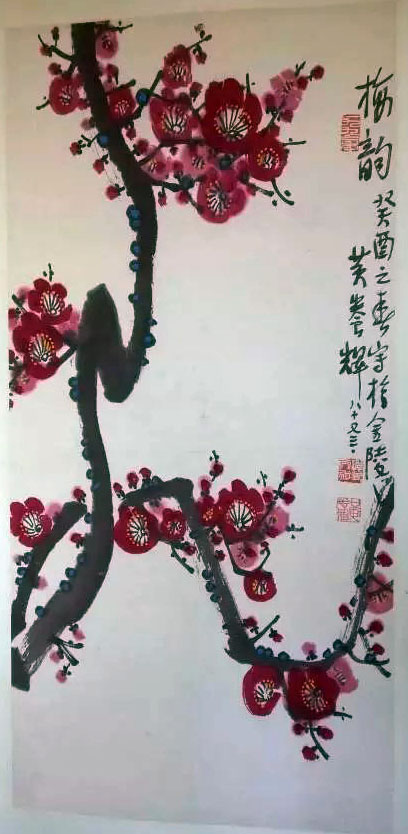 梅韵 癸酉之春写於金陵
黄养辉 八十又三